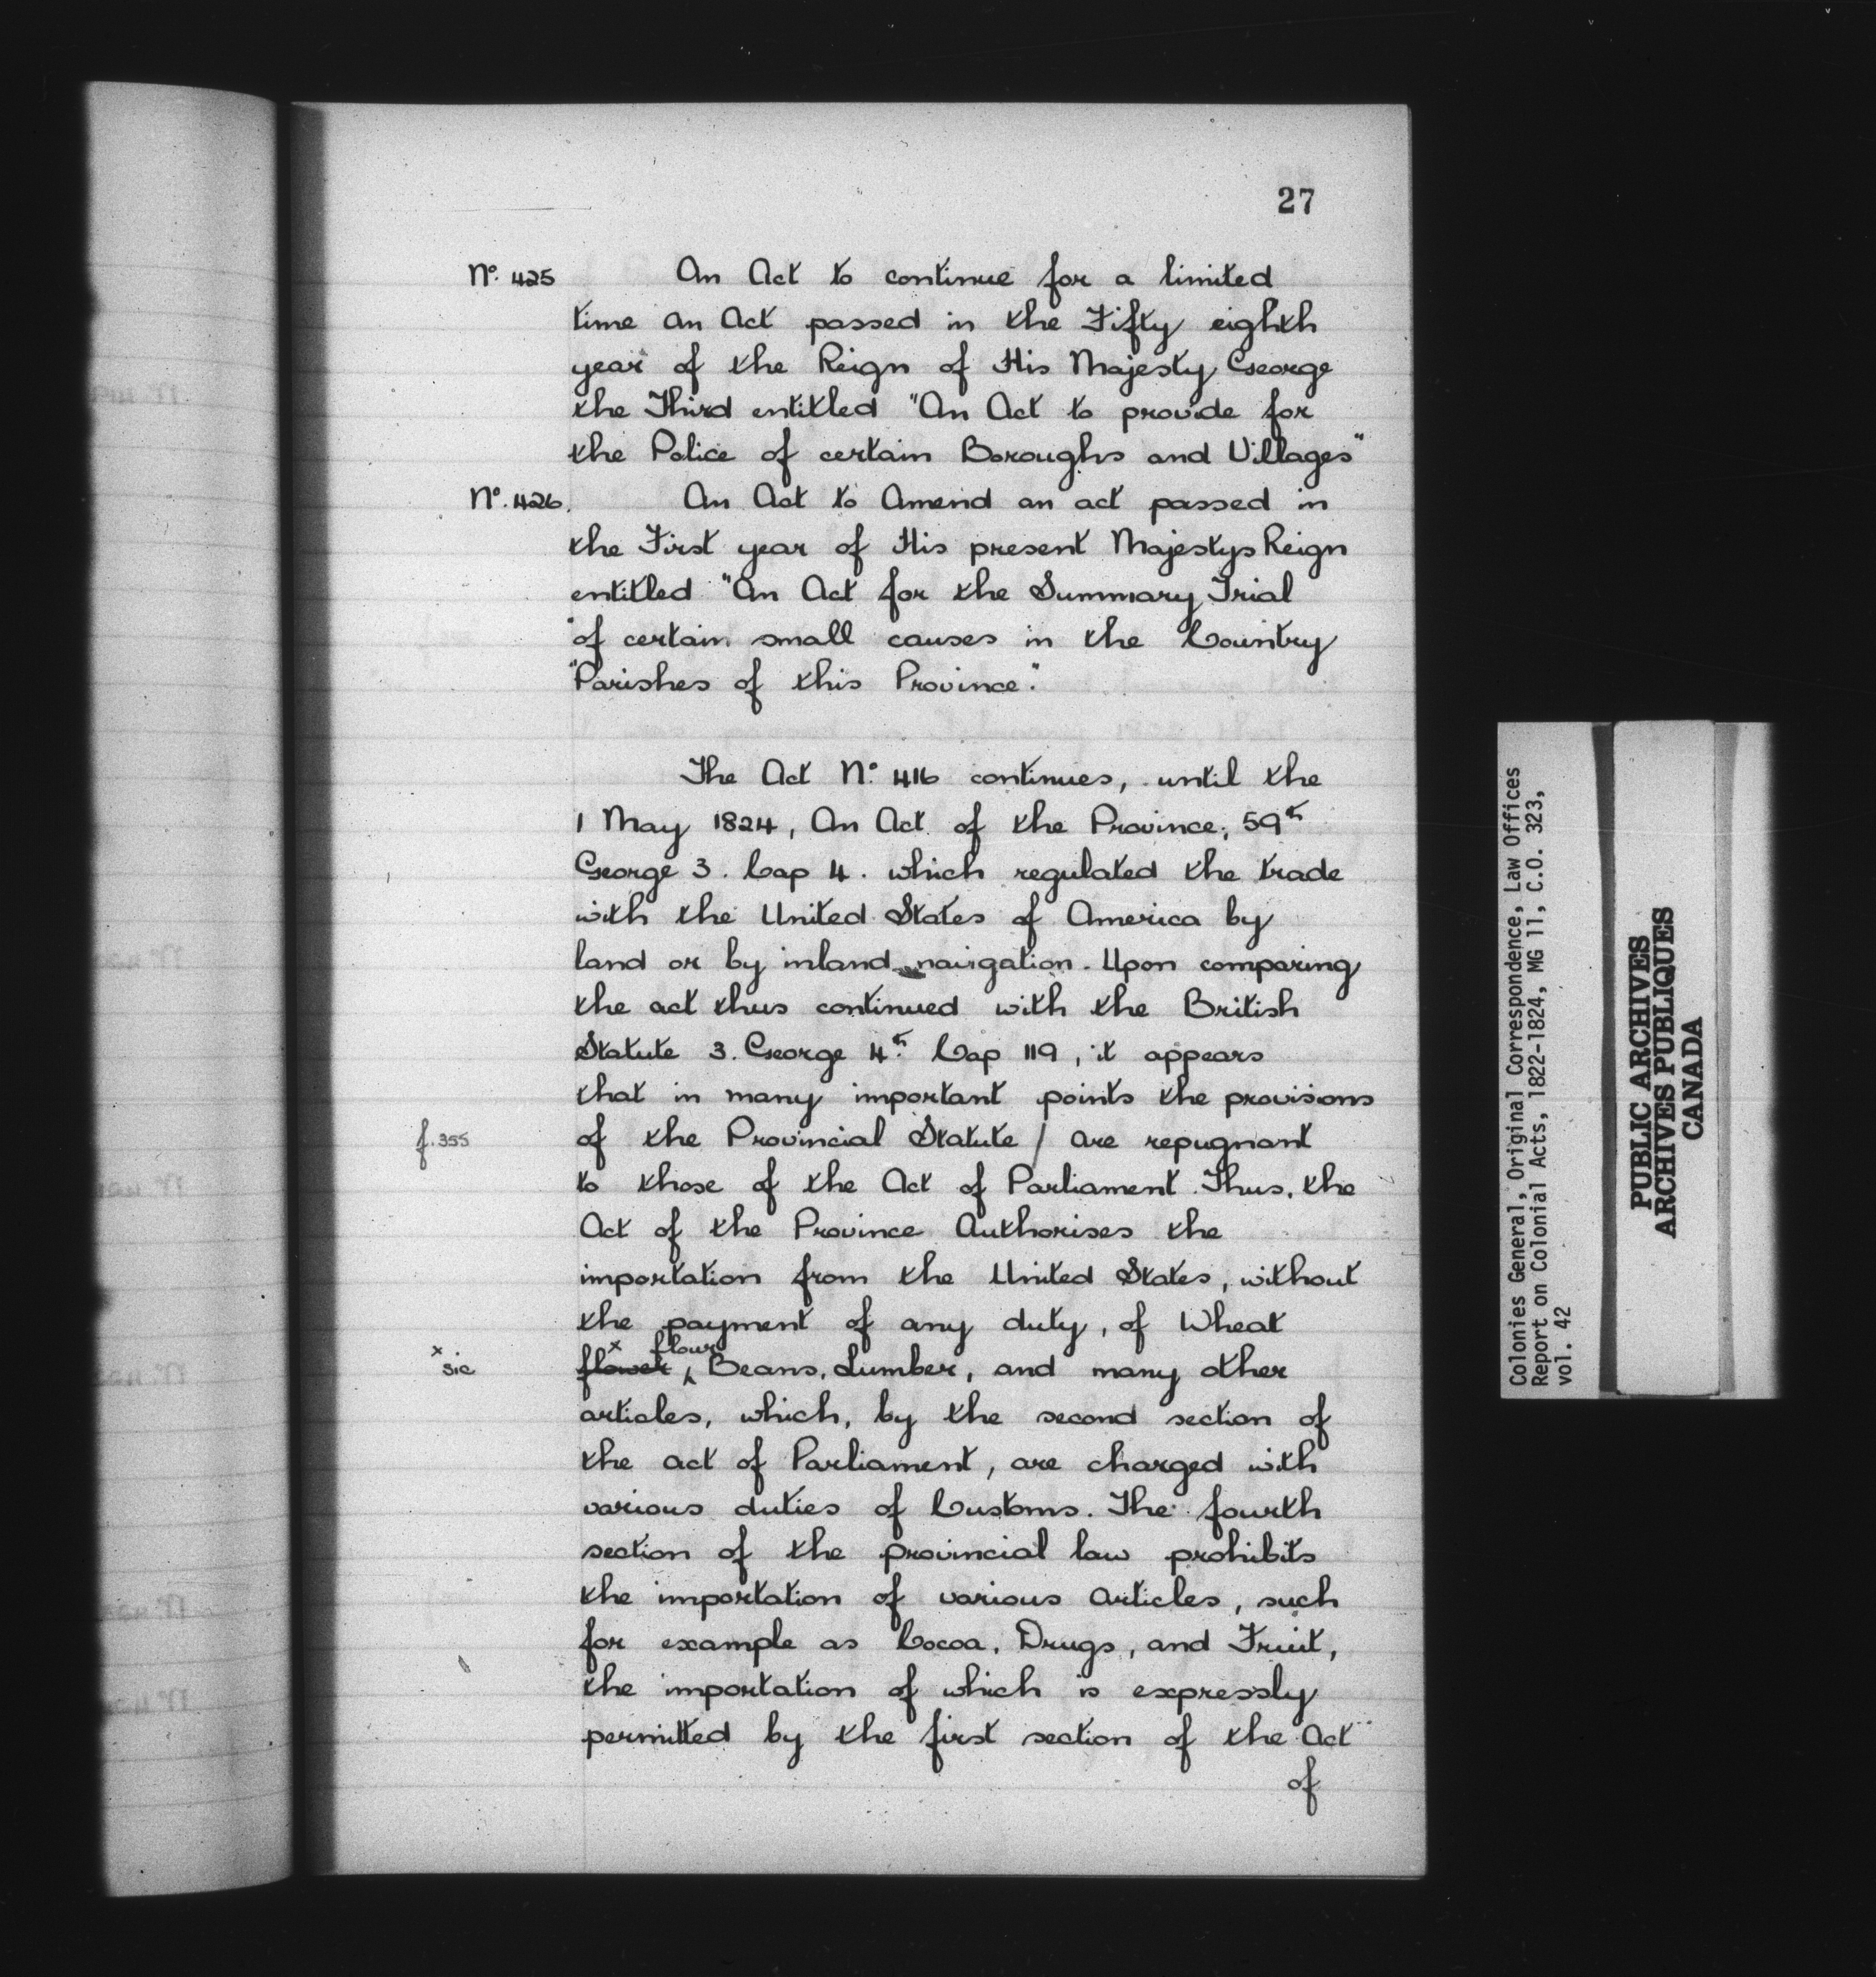 27
No. 425 An Act to continue for a limited
time an Act passed in the Fifty eighth
year of the Reign of His Majesty George
the Third entitled "An Act to provide for
the Police of certain Boroughs and Villages"
No. 426. An Act to Amend an act passed in
the First year of His present Majestys Reign
entitled "An Act for the Summary Trial
"of certain small causes in the Country
"Parishes of this Province."
The Act No. 416 continues, until the
1 May 1824, An Act of the Province, 59th
George 3. Cap 4. which regulated the trade
with the United States of America by
land or by inland navigation. Upon comparing
the act thus continued with the British
Statute 3. George 4th. Cap 119, it appears
that in many important points the provisions
f.355 of the Provincial Statute / are repugnant
to those of the Act of Parliament. Thus, the
Act of the Province Authorises the
importation from the United States, without
the payment of any duty, of Wheat
x sic flower x flour, Beans, Lumber, and many other
articles, which, by the second section of
the act of Parliament, are charged with
various duties of Customs. The fourth
section of the provincial law prohibits
the importation of various Articles, such
for example as Cocoa, Drugs, and Fruit,
the importation of which is expressly
permitted by the first section of the Act
of
Colonies General, Original Correspondence, Law Offices
Report on Colonial Acts, 1822-1824, MG 11, C.O. 323,
vol. 42
PUBLIC ARCHIVES
ARCHIVES PUBLIQUES
CANADA